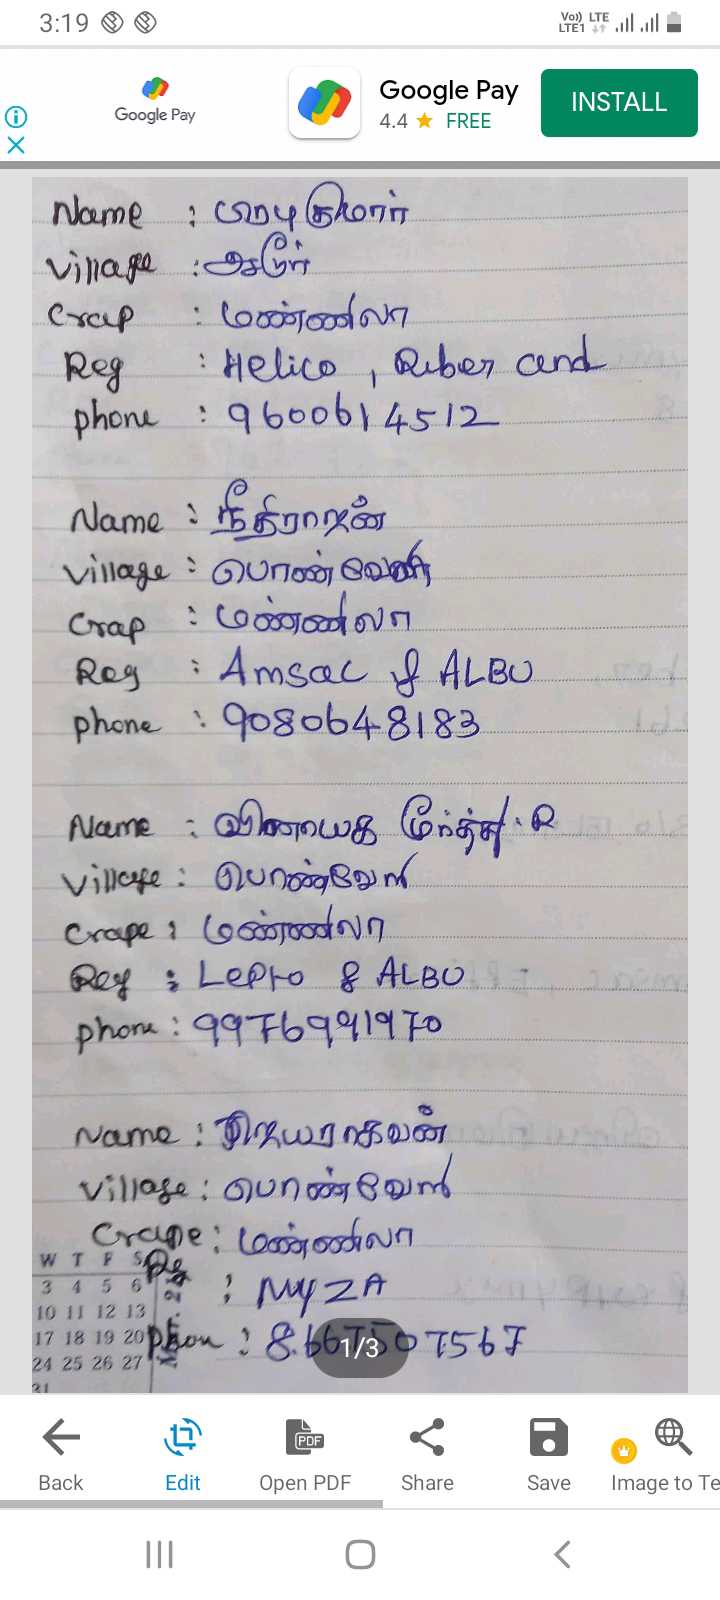 3:19
Vo)) LTE
LTE1
Google Pay
Google Pay
4.4 ★ FREE
INSTALL
Name :
Village :
Crap : மண்ணிலா
Reg : Helico , Riber and
phone : 9600614512
Name : நீதிராஜன்
village : பொண்வேளி
Crap : மண்ணிலா
Reg : Amsac & ALBU
phone : 9080648183
Name : விணாயக மூர்த்தி . R
Village : பொண்வேளி
Crape : மண்ணிலா
Reg : Lepro & ALBU
phone : 9976991970
Name : ஜெயராகவன்
Village : பொண்வேளி
Crape : மண்ணிலா
Reg : MyZA
Phon : 8667507567
W T F S
3 4 5 6
10 11 12 13
17 18 19 20
24 25 26 27
31
1/3
Back
Edit
PDF
Open PDF
Share
Save
Image to Te